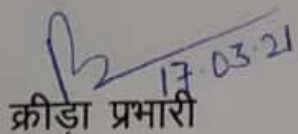 17.03.21
क्रीड़ा प्रभारी